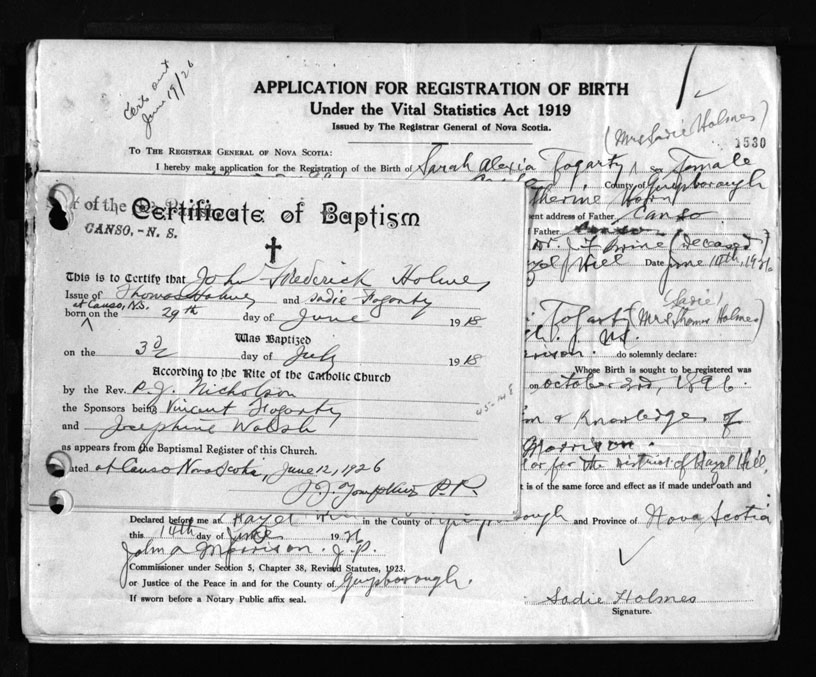 Certs out
June 19/26
APPLICATION FOR REGISTRATION OF BIRTH
Under the Vital Statistics Act 1919
Issued by The Registrar General of Nova Scotia.
(Mrs Sadie Holmes)
1530
TO THE REGISTRAR GENERAL OF NOVA SCOTIA:
I hereby make application for the Registration of the Birth of Sarah Alexia Fogarty, a Female
County of Guysborough
therine Horn
ent address of Father Canso
Father
Dr. J. F. Brine (deceased)
zel Hill Date June 14th, 1926
r of the
CANSO, - N. S.
Certificate of Baptism
This is to Certify that John Frederick Holmes
Issue of Thomas Holmes and Sadie Fogarty
at Canso, N.S.
born on the 29th day of June 1918
Was Baptized
on the 3rd day of July 1918
According to the Rite of the Catholic Church
by the Rev. P. J. Nicholson
the Sponsors being Vincent Fogarty
and Josephine Walsh
as appears from the Baptismal Register of this Church.
ated at Canso Nova Scotia, June 12, 1926
J. J. Tompkins P.P.
45-148
Sadie
Fogarty (Mrs Thomas Holmes)
rrison. do solemnly declare:
Whose Birth is sought to be registered was
on October 2nd, 1896.
on & Knowledge of
Morrison.
or for the District of Hazel Hill,
t is of the same force and effect as if made under oath and
Declared before me at Hazel Hill in the County of Guysborough and Province of Nova Scotia
this 14th day of June 1926
John A Morrison. J.P.
Commissioner under Section 5, Chapter 38, Revised Statutes, 1923.
or Justice of the Peace in and for the County of Guysborough.
If sworn before a Notary Public affix seal.
Sadie Holmes
Signature.